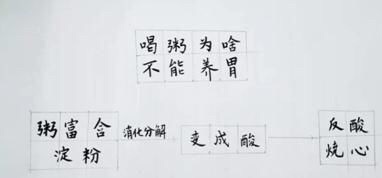 喝粥为啥
不能养胃
粥富含
淀粉
消化分解
变成酸
反酸
烧心